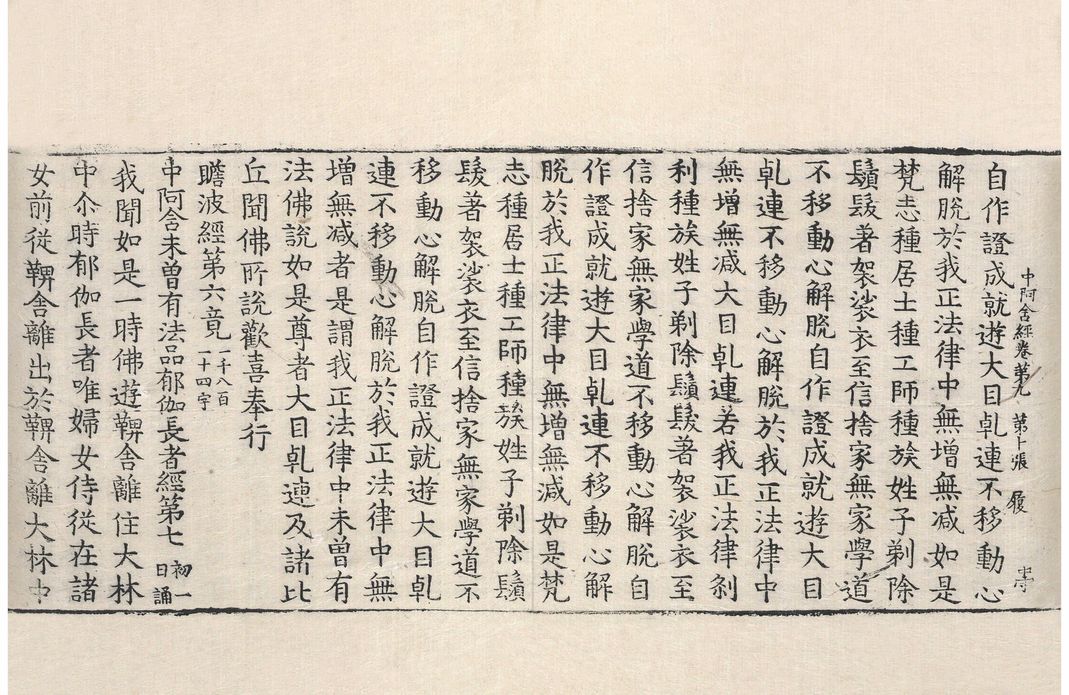 中阿含經卷第九　第十張　履
自作證成就遊大目乹連不移動心
解脫於我正法律中無增無減如是
梵志種居士種工師種族姓子剃除
鬚髮著袈裟衣至信捨家無家學道
不移動心解脫自作證成就遊大目
乹連不移動心解脫於我正法律中
無增無減大目乹連若我正法律剎
利種族姓子剃除鬚髮著袈裟衣至
信捨家無家學道不移動心解脫自
作證成就遊大目乹連不移動心解
脫於我正法律中無增無減如是梵
志種居士種工師種族姓子剃除鬚
髮著袈裟衣至信捨家無家學道不
移動心解脫自作證成就遊大目乹
連不移動心解脫於我正法律中無
增無減者是謂我正法律中未曾有
法佛說如是尊者大目乹連及諸比
丘聞佛所說歡喜奉行
瞻波經第六竟一千八百一十四字
中阿含未曾有法品郁伽長者經第七初一日誦
我聞如是一時佛遊鞞舍離住大林
中尒時郁伽長者唯婦女侍從在諸
女前從鞞舍離出於鞞舍離大林中